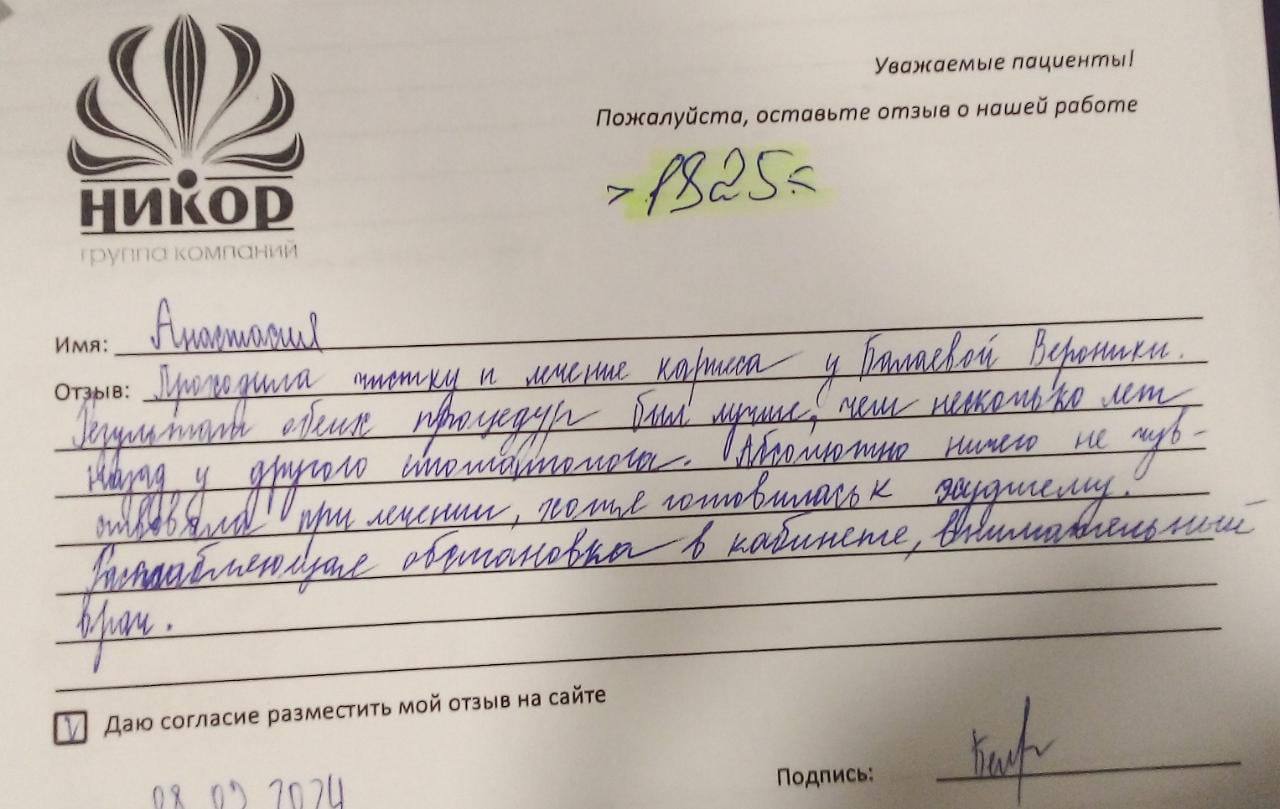 НИКОР
группа компаний
Уважаемые пациенты!
Пожалуйста, оставьте отзыв о нашей работе
>1925<
Имя: Анастасия
Отзыв: Проходила чистку и лечение кариеса у Балаевой Вероники.
Результат обеих процедур был лучше, чем несколько лет
назад у другого стоматолога. Абсолютно ничего не чув-
ствовала при лечении, хотя готовилась к худшему.
Расслабляющая обстановка в кабинете, внимательный
врач.
V Даю согласие разместить мой отзыв на сайте
2024
Подпись: